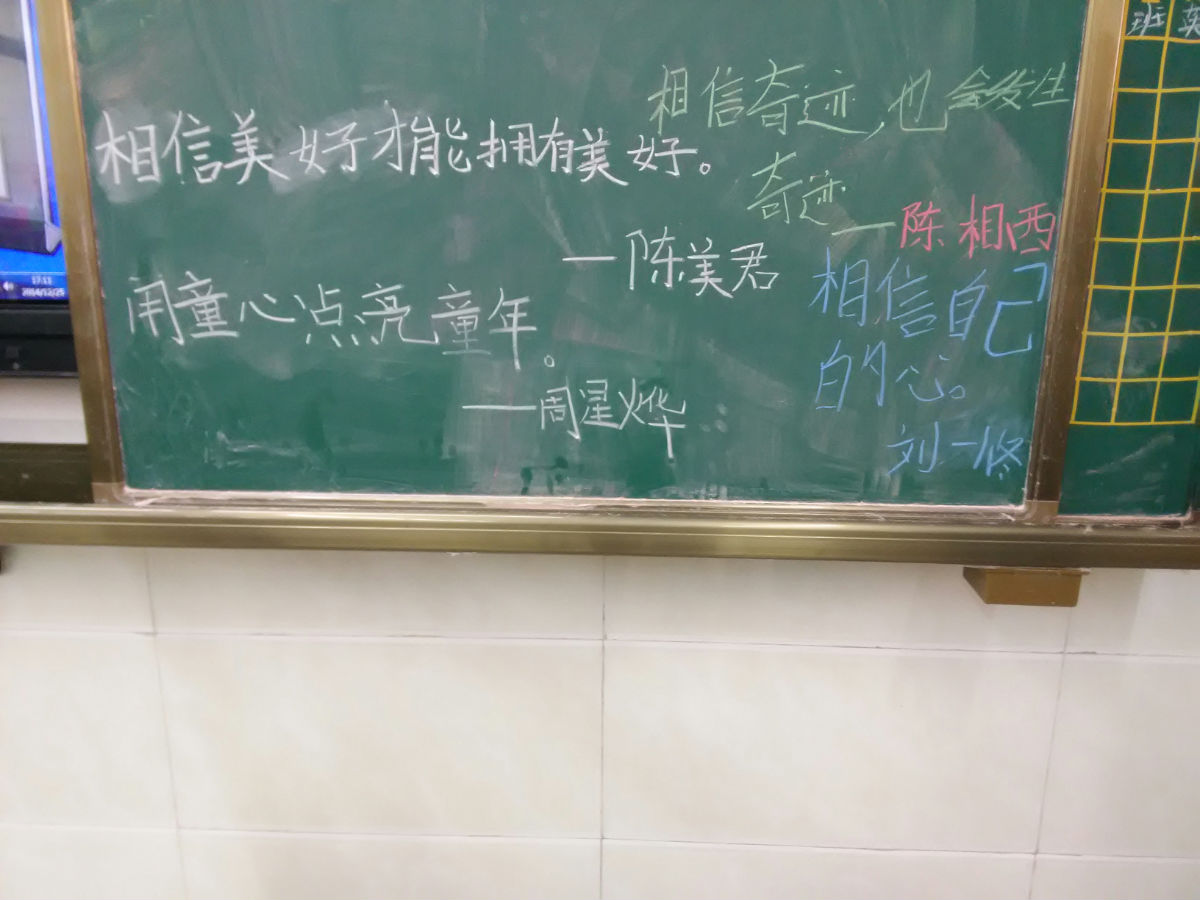 相信美好才能拥有美好。
—陈美君
用童心点亮童年。
—周星烨
相信奇迹,也会发生
奇迹—陈相西
相信自己
的心。
刘一修
班 英
17:11
2014/12/25